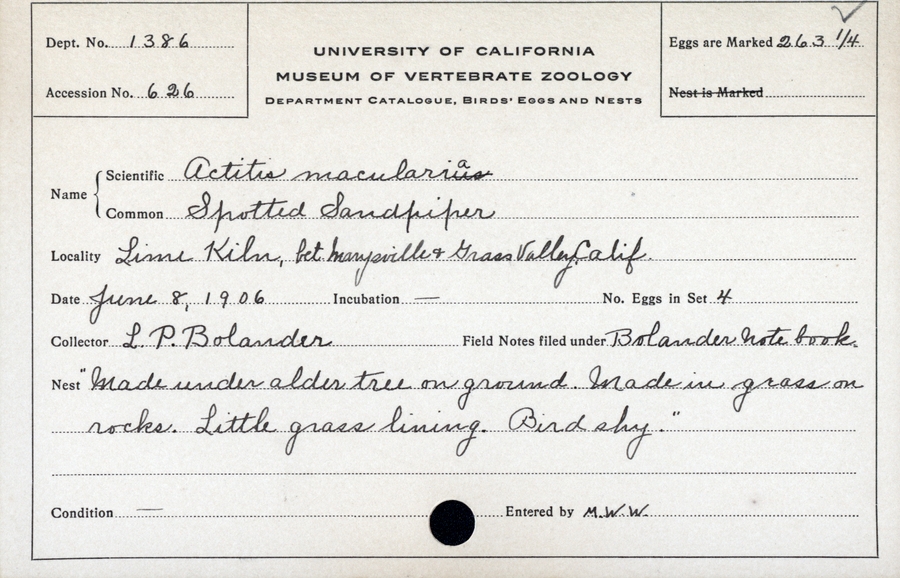 Dept. No. 1386
Accession No. 626
UNIVERSITY OF CALIFORNIA
MUSEUM OF VERTEBRATE ZOOLOGY
DEPARTMENT CATALOGUE, BIRDS' EGGS AND NESTS
Eggs are Marked 263 1/4
Nest is Marked
Name { Scientific Actitis macularia
Common Spotted Sandpiper
Locality Lime Kiln, bet. Marysville & Grass Valley, Calif.
Date June 8, 1906 Incubation — No. Eggs in Set 4
Collector L. P. Bolander Field Notes filed under Bolander Note book.
Nest "Made under alder tree on ground. Made in grass on
rocks. Little grass lining. Bird shy."
Condition — Entered by M.W.W.